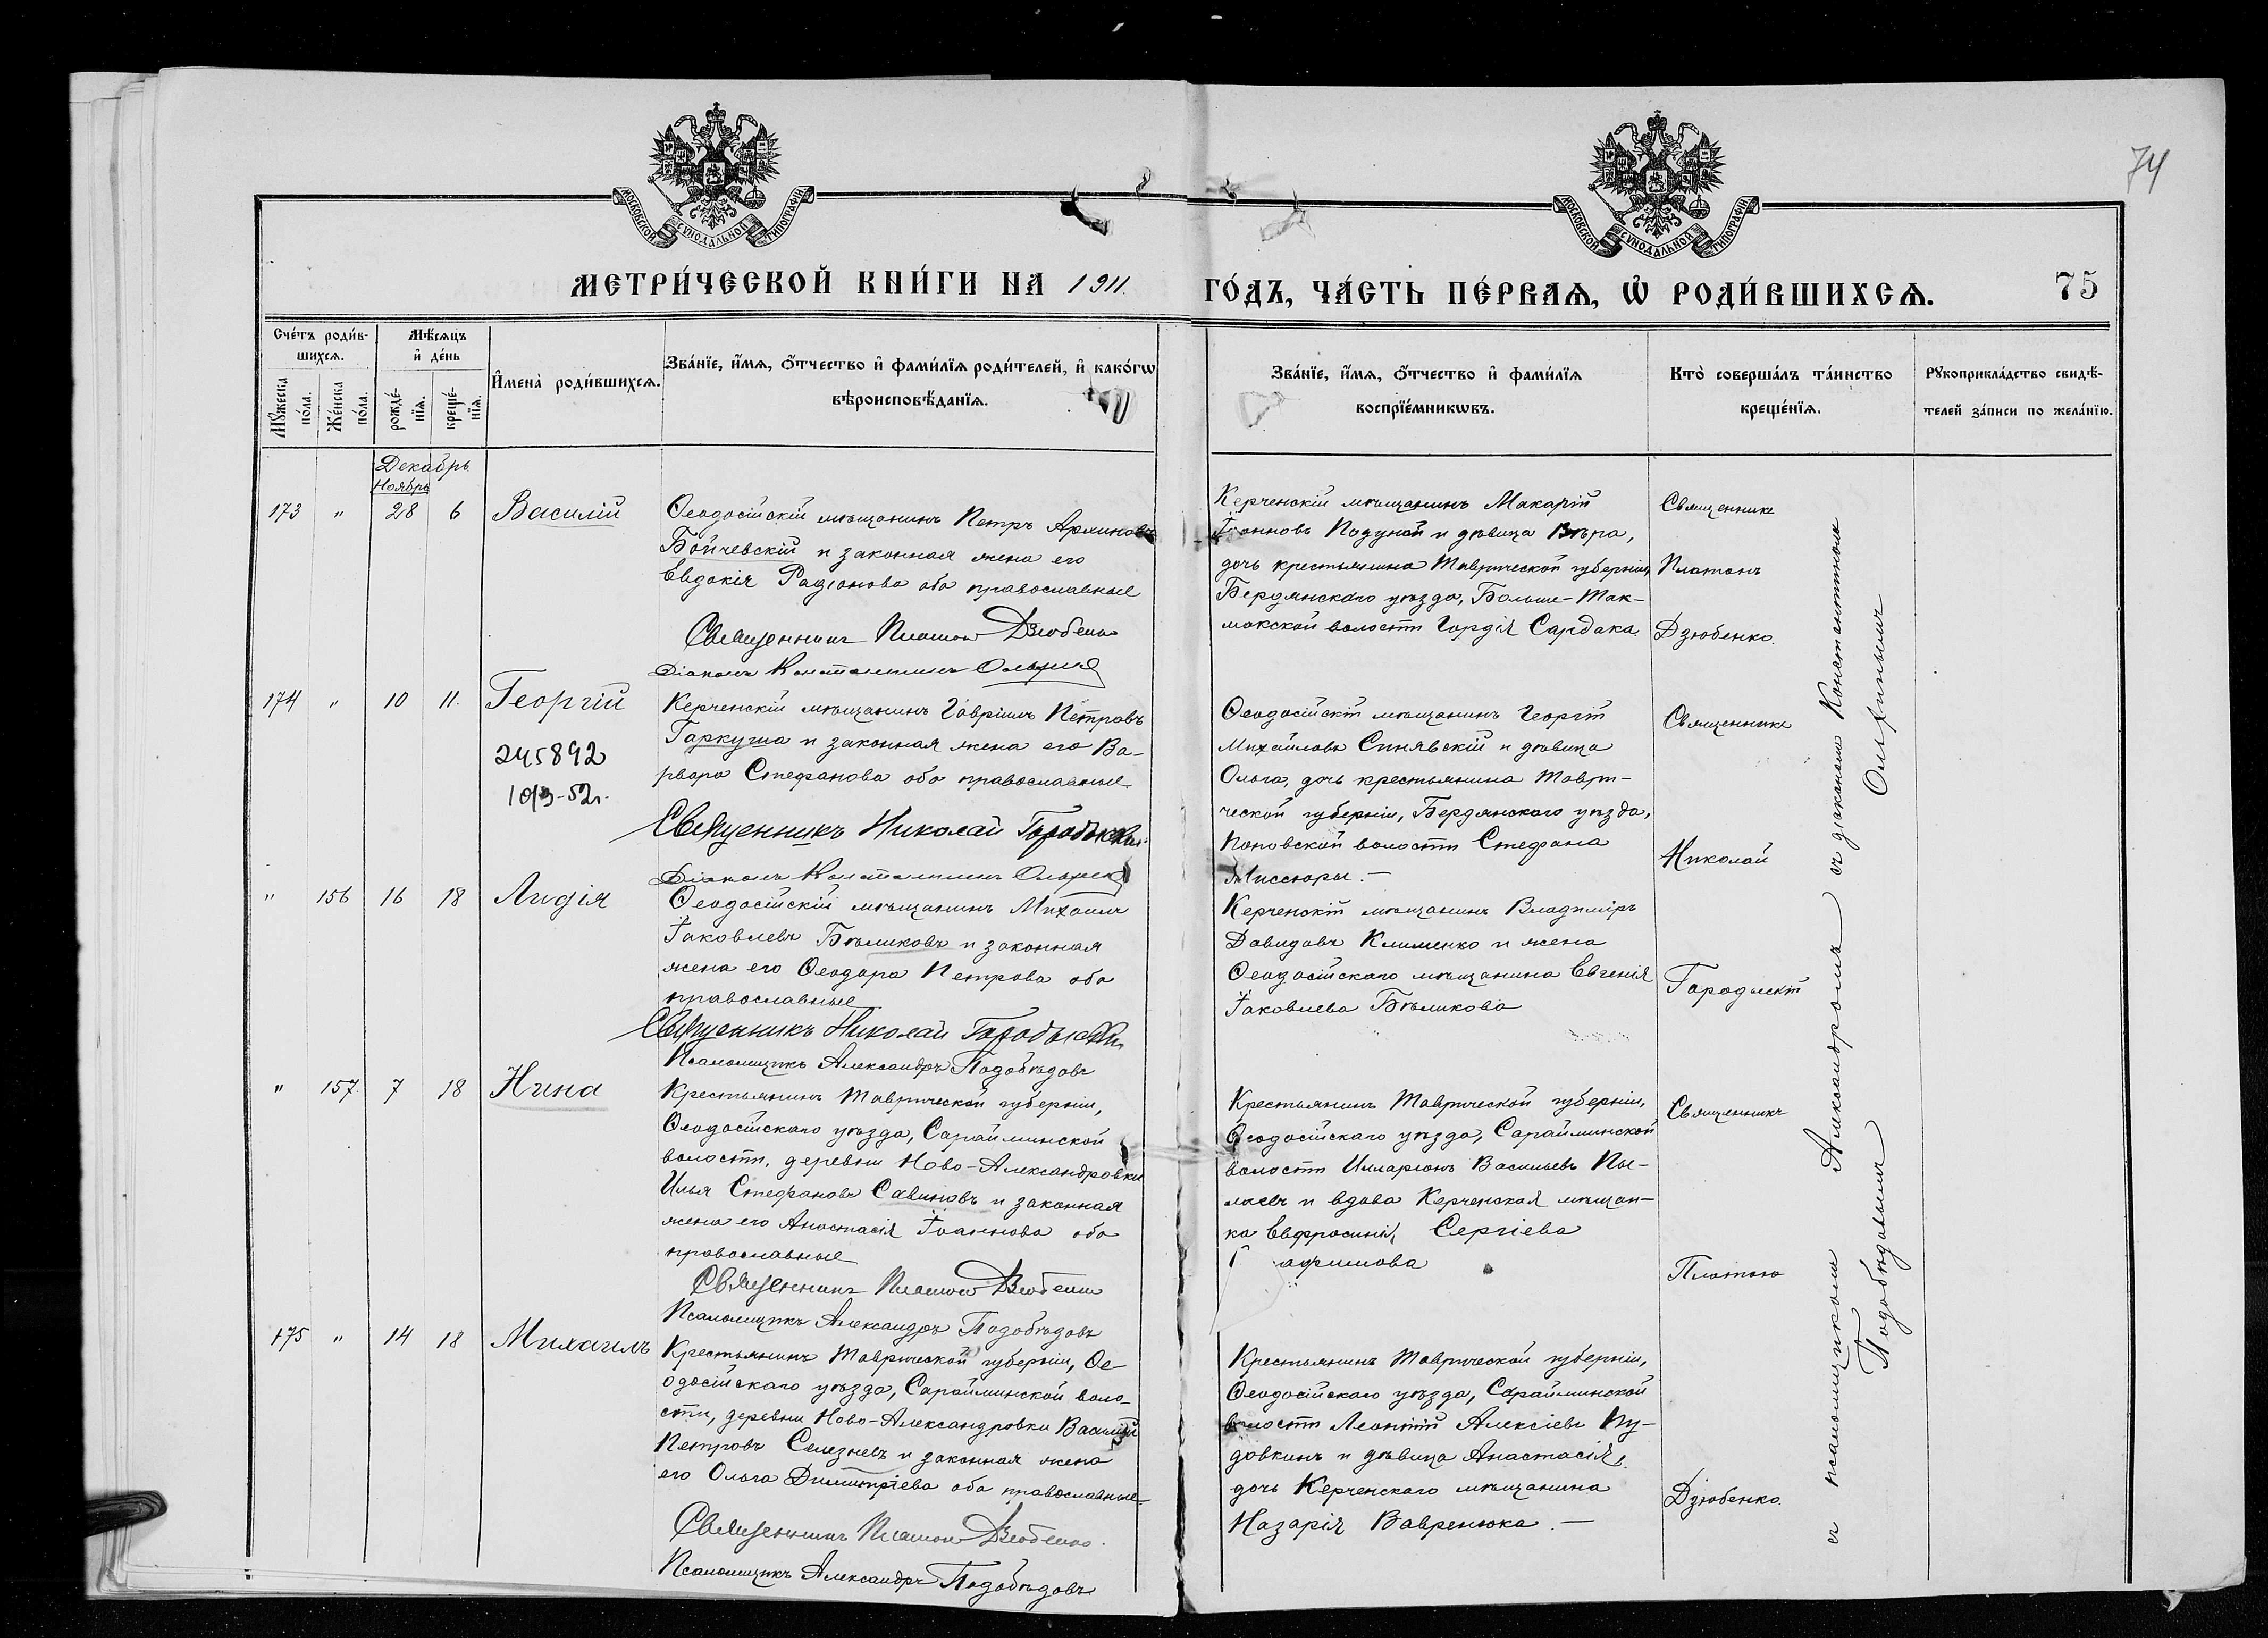 74
МОСКОВСКОЙ СУНОДАЛЬНОЙ ТИПОГРАФІИ
МОСКОВСКОЙ СУНОДАЛЬНОЙ ТИПОГРАФІИ
МЕТРИ́ЧЕСКОЙ КНИ́ГИ НА 1911.
ГО́ДЪ, ЧА́СТЬ ПЕ́РВАѦ, Ѡ҆ РОДИ́ВШИХСѦ.
75
Сче́тъ роди́в-
шихсѧ.
Мꙋ́жеска
по́ла.
Же́нска
по́ла.
Мѣ́сѧцъ
и҆ де́нь
рожде́-
нїѧ.
креще́-
нїѧ.
И҆мена̀ роди́вшихсѧ.
Зва́нїе, и҆́мѧ, ѻ҆́тчество и҆ фами́лїѧ роди́телей, и҆ како́гѡ
вѣроисповѣ́данїѧ.
Зва́нїе, и҆́мѧ, ѻ҆́тчество и҆ фами́лїѧ
воспрїе́мникѡвъ.
Кто̀ соверша́лъ та́инство
креще́нїѧ.
Рꙋкоприкла́дство свидѣ́-
телей за́писи по жела́нїю.
Декабрь
Ноябрь
173 " 28 6 Василій
Ѳеодосійскій мѣщанинъ Петръ
Бойчевскій и законная жена его
Евдокія Радіонова оба православные
Священникъ Платонъ Дзюбенко
Діаконъ Константинъ
Керченскій мѣщанинъ Макарій
Іоанновъ и дѣвица Вѣра,
дочь крестьянина Таврической губерніи,
Бердянскаго уѣзда, Больше-Ток-
макской волости Гордія Сардака
Священникъ
Платонъ
Дзюбенко.
174 " 10 11. Георгій
245892
52г.
Керченскій мѣщанинъ Гавріилъ Петровъ
Гаркуша и законная жена его Ва-
рвара Стефанова оба православные
Священникъ Николай Городыскій
Діаконъ Константинъ
Ѳеодосійскій мѣщанинъ Георгій
Михайловъ Синявскій и дѣвица
Ольга, дочь крестьянина Таври-
ческой губерніи, Бердянскаго уѣзда,
Поповской волости Стефана
Миссюры. —
Священникъ
Николай
Городыскій
" 156 16 18 Лидія
Ѳеодосійскій мѣщанинъ Михаилъ
Іаковлевъ Бѣликовъ и законная
жена его Ѳеодора Петрова оба
православные
Священникъ Николай Городыскій
Псаломщикъ Александръ Подобѣдовъ
Керченскій мѣщанинъ Владиміръ
Давидовъ Клименко и жена
Ѳеодосійскаго мѣщанина Евгенія
Іаковлева Бѣликова
" 157. 7 18 Нина
Крестьянинъ Таврической губерніи,
Ѳеодосійскаго уѣзда, Сарайминской
волости, деревни Ново-Александровки
Илья Стефановъ Савиновъ и законная
жена его Анастасія Іоаннова оба
православные
Священникъ Платонъ Дзюбенко
Псаломщикъ Александръ Подобѣдовъ
Крестьянинъ Таврической губерніи,
Ѳеодосійскаго уѣзда, Сарайминской
волости Илларіонъ Васильевъ Пы-
и вдова Керченская мѣщан-
ка Евфросинія Сергіева
Священникъ
Платонъ
175 " 14 18 Михаилъ
Крестьянинъ Таврической губерніи, Ѳе-
одосійскаго уѣзда, Сарайминской воло-
сти, деревни Ново-Александровки Василій
Петровъ Селезневъ и законная жена
его Ольга Димитріева оба православные —
Священникъ Платонъ Дзюбенко.
Псаломщикъ Александръ Подобѣдовъ
Крестьянинъ Таврической губерніи,
Ѳеодосійскаго уѣзда, Сарайминской
волости Леонтій Алексіевъ Пу-
довкинъ и дѣвица Анастасія,
дочь Керченскаго мѣщанина
Назарія Вавренюка. —
Дзюбенко.
съ псаломщикомъ Александромъ съ діакономъ Константиномъ
Подобѣдовымъ